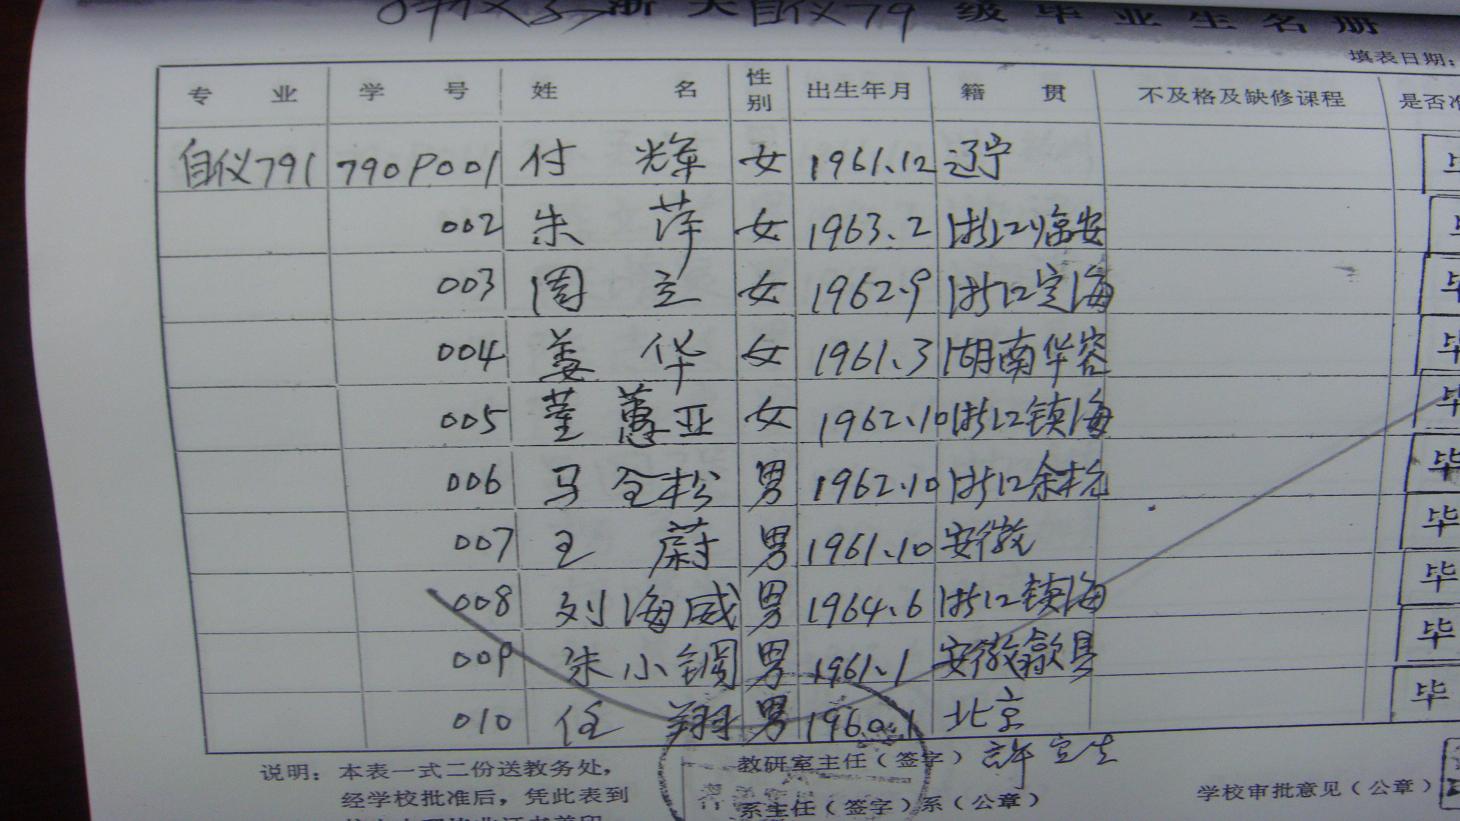 浙大自仪79级毕业生名册
填表日期:
专业 学号 姓名 性别 出生年月 籍贯 不及格及缺修课程 是否准
自仪791 790P001 付辉 女 1961.12 辽宁
002 朱萍 女 1963.2 浙江临安
003 周立 女 1962.9 浙江定海
004 姜华 女 1961.3 湖南华容
005 董蕙亚 女 1962.10 浙江镇海
006 马全松 男 1962.10 浙江余杭 毕
007 王蔚 男 1961.10 安徽 毕
008 刘海威 男 1964.6 浙江镇海 毕
009 朱小钢 男 1961.1 安徽歙县 毕
010 任翔 男 1960.1 北京 毕
说明：本表一式二份送教务处，
教研室主任（签字）
经学校批准后，凭此表到
系主任（签字）系（公章）
学校审批意见（公章）